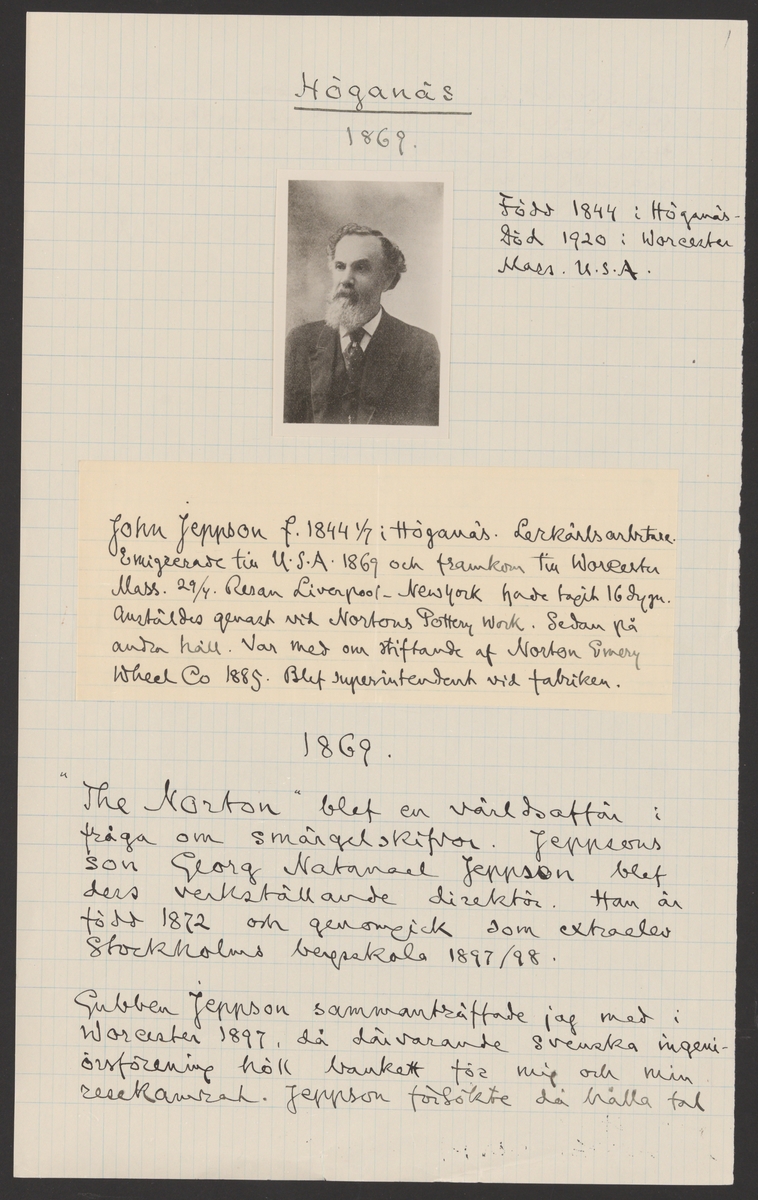 1
Höganäs
1869.
Född 1844 i Höganäs-
Död 1920 i Worcester
Mass. U.S.A.
John Jeppson f. 1844 1/7 i Höganäs. Lerkärlsarbetare.
Emigrerade till U.S.A. 1869 och framkom till Worcester
Mass. 29/4. Resan Liverpool - Newyork hade tagit 16 dygn.
Anställdes genast vid Nortons Pottery Work. Sedan på
andra håll. Var med om stiftande af Norton Emery
Wheel Co 1885. Blef superintendent vid fabriken.
1869.
"The Norton" blef en världsaffär i
fråga om smärgelskifvor. Jeppsons
son Georg Natanael Jeppson blef
dess verkställande direktör. Han är
född 1872 och genomgick som extraelev
Stockholms bergsskola 1897/98.
Gubben Jeppson sammanträffade jag med i
Worcester 1897, då därvarande svenska ingeni-
örsförening höll bankett för mig och min
resekamrat. Jeppson försökte då hålla tal